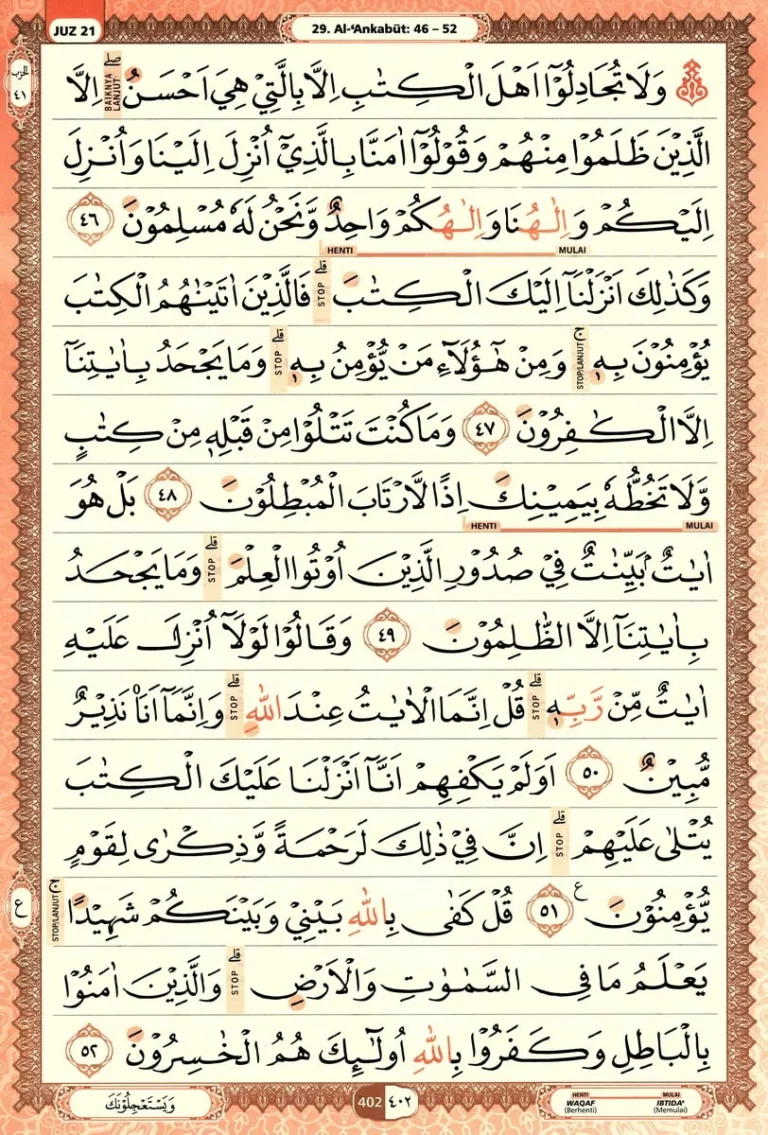 JUZ 21
29. Al-‘Ankabūt: 46 – 52
الحزب ٤١
وَلَا تُجَادِلُوْٓا اَهْلَ الْكِتٰبِ اِلَّا بِالَّتِيْ هِيَ اَحْسَنُ ۖ BAIKNYA LANJUT اِلَّا
الَّذِيْنَ ظَلَمُوْا مِنْهُمْ وَقُوْلُوْٓا اٰمَنَّا بِالَّذِيْٓ اُنْزِلَ اِلَيْنَا وَاُنْزِلَ
اِلَيْكُمْ وَاِلٰهُنَا وَاِلٰهُكُمْ وَاحِدٌ وَّنَحْنُ لَهٗ مُسْلِمُوْنَ ٤٦
HENTI MULAI
وَكَذٰلِكَ اَنْزَلْنَآ اِلَيْكَ الْكِتٰبَ ۗ STOP فَالَّذِيْنَ اٰتَيْنٰهُمُ الْكِتٰبَ
يُؤْمِنُوْنَ بِهٖ ۚ STOP/LANJUT وَمِنْ هٰٓؤُلَاۤءِ مَنْ يُّؤْمِنُ بِهٖ ۗ STOP وَمَا يَجْحَدُ بِاٰيٰتِنَآ
اِلَّا الْكٰفِرُوْنَ ٤٧ وَمَا كُنْتَ تَتْلُوْا مِنْ قَبْلِهٖ مِنْ كِتٰبٍ
وَّلَا تَخُطُّهٗ بِيَمِيْنِكَ اِذًا لَّارْتَابَ الْمُبْطِلُوْنَ ٤٨ بَلْ هُوَ
HENTI MULAI
اٰيٰتٌۢ بَيِّنٰتٌ فِيْ صُدُوْرِ الَّذِيْنَ اُوْتُوا الْعِلْمَ ۗ STOP وَمَا يَجْحَدُ
بِاٰيٰتِنَآ اِلَّا الظّٰلِمُوْنَ ٤٩ وَقَالُوْا لَوْلَآ اُنْزِلَ عَلَيْهِ
اٰيٰتٌ مِّنْ رَّبِّهٖ ۗ STOP قُلْ اِنَّمَا الْاٰيٰتُ عِنْدَ اللّٰهِ ۗ STOP وَاِنَّمَآ اَنَا۠ نَذِيْرٌ
مُّبِيْنٌ ٥٠ اَوَلَمْ يَكْفِهِمْ اَنَّآ اَنْزَلْنَا عَلَيْكَ الْكِتٰبَ
يُتْلٰى عَلَيْهِمْ ۗ STOP اِنَّ فِيْ ذٰلِكَ لَرَحْمَةً وَّذِكْرٰى لِقَوْمٍ
يُّؤْمِنُوْنَ ٥١ ع قُلْ كَفٰى بِاللّٰهِ بَيْنِيْ وَبَيْنَكُمْ شَهِيْدًا ۚ STOP/LANJUT
ع
يَعْلَمُ مَا فِى السَّمٰوٰتِ وَالْاَرْضِ ۗ STOP وَالَّذِيْنَ اٰمَنُوْا
بِالْبَاطِلِ وَكَفَرُوْا بِاللّٰهِ اُولٰۤىِٕكَ هُمُ الْخٰسِرُوْنَ ٥٢
وَيَسْتَعْجِلُوْنَكَ
402 ٤٠٢
HENTI MULAI
WAQAF IBTIDA’
(Berhenti) (Memulai)